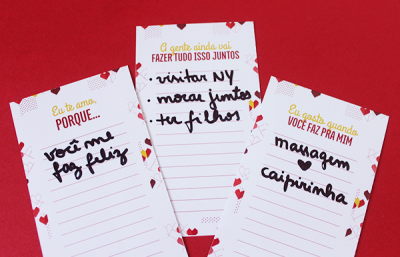 Eu te amo,
PORQUE...
você me
faz feliz
A gente ainda vai
FAZER TUDO ISSO JUNTOS
• visitar NY
• morar juntos
• ter filhos
Eu gosto quando
VOCÊ FAZ PRA MIM
massagem
caipirinha